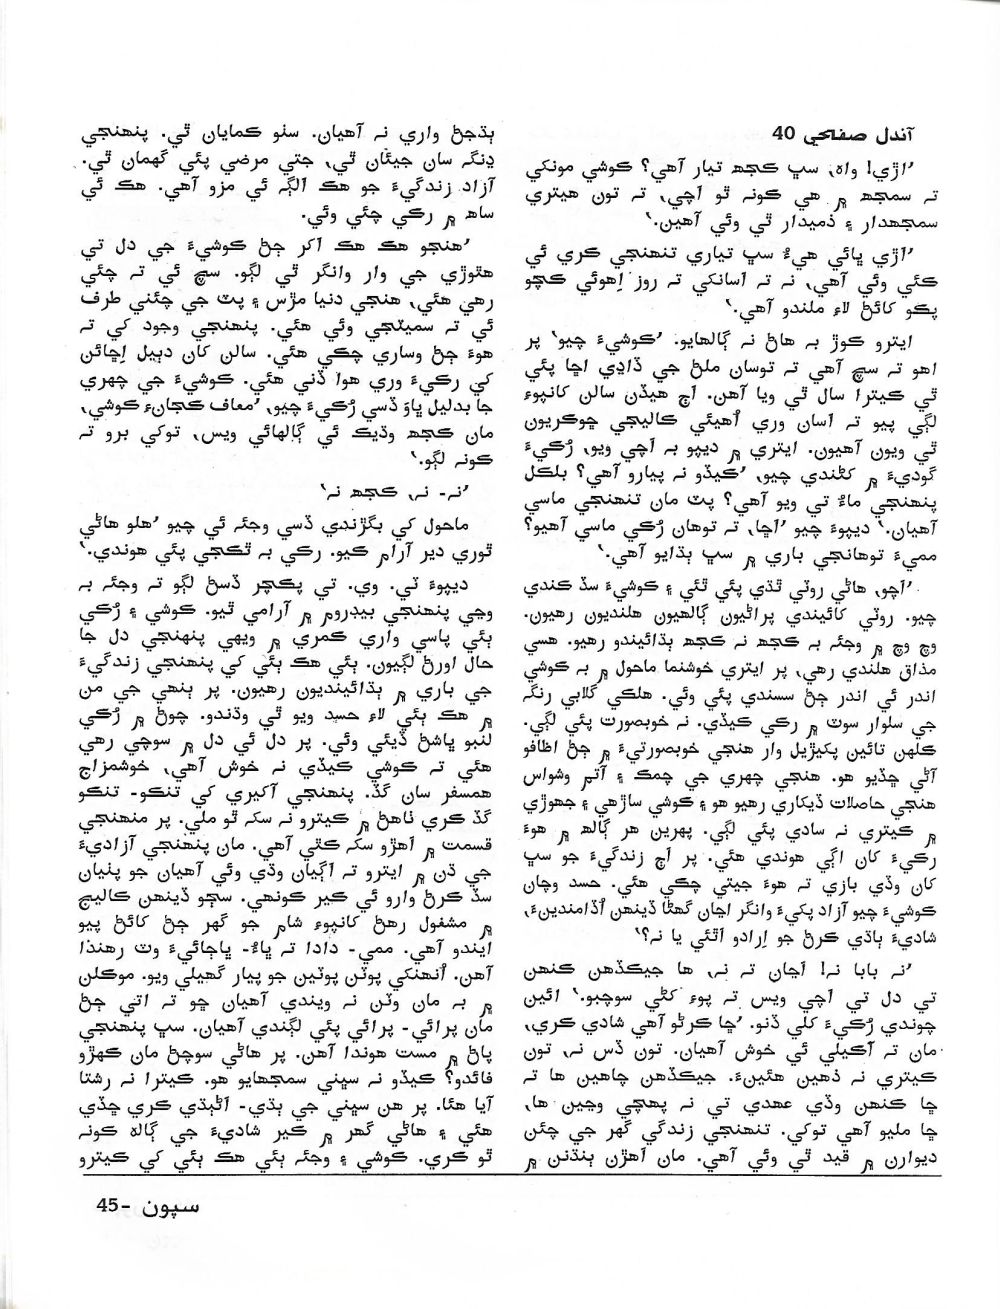 آندل صفاڪي 40
’اڙي! واهه، سڀ ڪجهه تيار آهي؟ ڪوشي مونکي
ته سمجهه ۾ هي ڪونه ٿو اچي، ته تون هيتري
سمجهدار ۽ ذميدار ٿي وئي آهين.‘
’اڙي ڀائي هيءُ سڀ تياري تنهنجي ڪري ئي
ڪئي وئي آهي، نه ته اسانکي ته روز اِهوئي ڪچو
پڪو کائڻ لاءِ ملندو آهي.‘
ايترو ڪوڙ به هاڻ نه ڳالهايو. ’ڪوشيءَ چيو‘ پر
اهو ته سچ آهي ته توسان ملڻ جي ڏاڍي اڇا پئي
ٿي ڪيترا سال ٿي ويا آهن. اڄ هيڏن سالن کانپوءِ
لڳي پيو ته اسان وري اُهيئي ڪاليجي ڇوڪريون
ٿي ويون آهيون. ايتري ۾ ديپو به اچي ويو، رُڪيءَ
گوديءَ ۾ کڻندي چيو، ’ڪيڏو نه پيارو آهي؟ بلڪل
پنهنجي ماءُ تي ويو آهي؟ پٽ مان تنهنجي ماسي
آهيان.‘ ديپوءَ چيو ’اڇا، ته توهان رُڪي ماسي آهيو؟
مميءَ توهانجي باري ۾ سڀ ٻڌايو آهي.‘
’اچو، هاڻي روٽي ٿڌي پئي ٿئي ۽ ڪوشيءَ سڏ ڪندي
چيو. روٽي کائيندي پراڻيون ڳالهيون هلنديون رهيون.
وچ وچ ۾ وجئه به ڪجهه نه ڪجهه ٻڌائيندو رهيو. هسي
مذاق هلندي رهي، پر ايتري خوشنما ماحول ۾ به ڪوشي
اندر ئي اندر ڄڻ سسندي پئي وئي. هلڪي گلابي رنگه
جي سلوار سوٽ ۾ رڪي ڪيڏي. نه خوبصورت پئي لڳي.
ڪلهن تائين پکيڙيل وار هنجي خوبصورتيءَ ۾ ڄڻ اظافو
آڻي ڇڏيو هو. هنجي چهري جي چمڪ ۽ آتم وشواس
هنجي حاصلات ڏيکاري رهيو هو ۽ ڪوشي ساڙهي ۽ جهوڙي
۾ ڪيتري نه سادي پئي لڳي. پهرين هر ڳالهه ۾ هوءَ
رڪيءَ کان اڳي هوندي هئي. پر اڄ زندگيءَ جو سڀ
کان وڏي بازي ته هوءَ جيتي چڪي هئي. حسد وچان
ڪوشيءَ چيو آزاد پکيءَ وانگر اڃان گهڻا ڏينهن اُڏامندينءَ،
شاديءَ ٻاڌي ڪرڻ جو اِرادو آٿئي يا نه؟‘
’نه بابا نه! اڃان ته نه، ها جيڪڏهن ڪنهن
تي دل تي اچي ويس ته پوءِ کڻي سوچبو.‘ ائين
چوندي رُڪيءَ کلي ڏنو. ’ڇا ڪرڻو آهي شادي ڪري،
مان ته آڪيلي ئي خوش آهيان. تون ڏس نه، تون
ڪيتري نه ذهين هئينءَ. جيڪڏهن چاهين ها ته
ڇا ڪنهن وڏي عهدي تي نه پهچي وڃين ها،
ڇا مليو آهي توکي. تنهنجي زندگي گهر جي چئن
ديوارن ۾ قيد ٿي وئي آهي. مان اهڙن ٻنڌنن ۾
ٻڌجڻ واري نه آهيان. سٺو ڪمايان ٿي. پنهنجي
ڍنگه سان جيئان ٿي، جتي مرضي پئي گهمان ٿي.
آزاد زندگيءَ جو هڪ الڳ ئي مزو آهي. هڪ ئي
ساهه ۾ رڪي چئي وئي.
’هنجو هڪ هڪ اکر ڄڻ ڪوشيءَ جي دل تي
هٿوڙي جي وار وانگر ٿي لڳو. سچ ئي ته چئي
رهي هئي، هنجي دنيا مڙس ۽ پٽ جي چئني طرف
ئي ته سميٽجي وئي هئي. پنهنجي وجود کي ته
هوءَ ڄڻ وساري چڪي هئي. سالن کان دٻيل اِڇائن
کي رڪيءَ وري هوا ڏني هئي. ڪوشيءَ جي چهري
جا بدليل ڀاوَ ڏسي رُڪيءَ چيو، ’معاف ڪجانءِ ڪوشي،
مان ڪجهه وڌيڪ ئي ڳالهائي ويس، توکي برو ته
ڪونه لڳو.‘
’نه- نه، ڪجهه نه‘
ماحول کي بگڙندي ڏسي وجئه ئي چيو ’هلو هاڻي
ٿوري دير آرام ڪيو. رڪي به ٿڪجي پئي هوندي.‘
ديپوءَ ٽي. وي. تي پڪچر ڏسڻ لڳو ته وجئه به
وڃي پنهنجي بيڊروم ۾ آرامي ٿيو. ڪوشي ۽ رُڪي
ٻئي پاسي واري ڪمري ۾ ويهي پنهنجي دل جا
حال اورڻ لڳيون. ٻئي هڪ ٻئي کي پنهنجي زندگيءَ
جي باري ۾ ٻڌائينديون رهيون. پر ٻنهي جي من
۾ هڪ ٻئي لاءِ حسد ويو ٿي وڌندو. چوڻ ۾ رُڪي
لنبو ڀاشڻ ڏيئي وئي. پر دل ئي دل ۾ سوچي رهي
هئي ته ڪوشي ڪيڏي نه خوش آهي، خوشمزاج
همسفر سان گڏ. پنهنجي آکيري کي تنڪو- تنڪو
گڏ ڪري ٺاهڻ ۾ ڪيترو نه سکه ٿو ملي. پر منهنجي
قسمت ۾ اهڙو سکه ڪٿي آهي. مان پنهنجي آزاديءَ
جي ڌن ۾ ايترو ته اڳيان وڌي وئي آهيان جو پنيان
سڏ ڪرڻ وارو ئي ڪير ڪونهي. سڄو ڏينهن ڪاليج
۾ مشغول رهڻ کانپوءِ شام جو گهر ڄڻ کائڻ پيو
ايندو آهي. ممي- دادا ته ڀاءُ- ڀاڄائيءَ وٽ رهندا
آهن. اُنهنکي پوٽن پوٽين جو پيار گهيلي ويو. موڪلن
۾ به مان وٽن نه ويندي آهيان ڇو ته اتي ڄڻ
مان پرائي- پرائي پئي لڳندي آهيان. سڀ پنهنجي
پاڻ ۾ مست هوندا آهن. پر هاڻي سوچڻ مان ڪهڙو
فائدو؟ ڪيڏو نه سڀني سمجهايو هو. ڪيترا نه رشتا
آيا هئا. پر هن سڀني جي ٻڌي- اڻٻڌي ڪري ڇڏي
هئي ۽ هاڻي گهر ۾ ڪير شاديءَ جي ڳالهه ڪونه
ٿو ڪري. ڪوشي ۽ وجئه ٻئي هڪ ٻئي کي ڪيترو
سپون -45